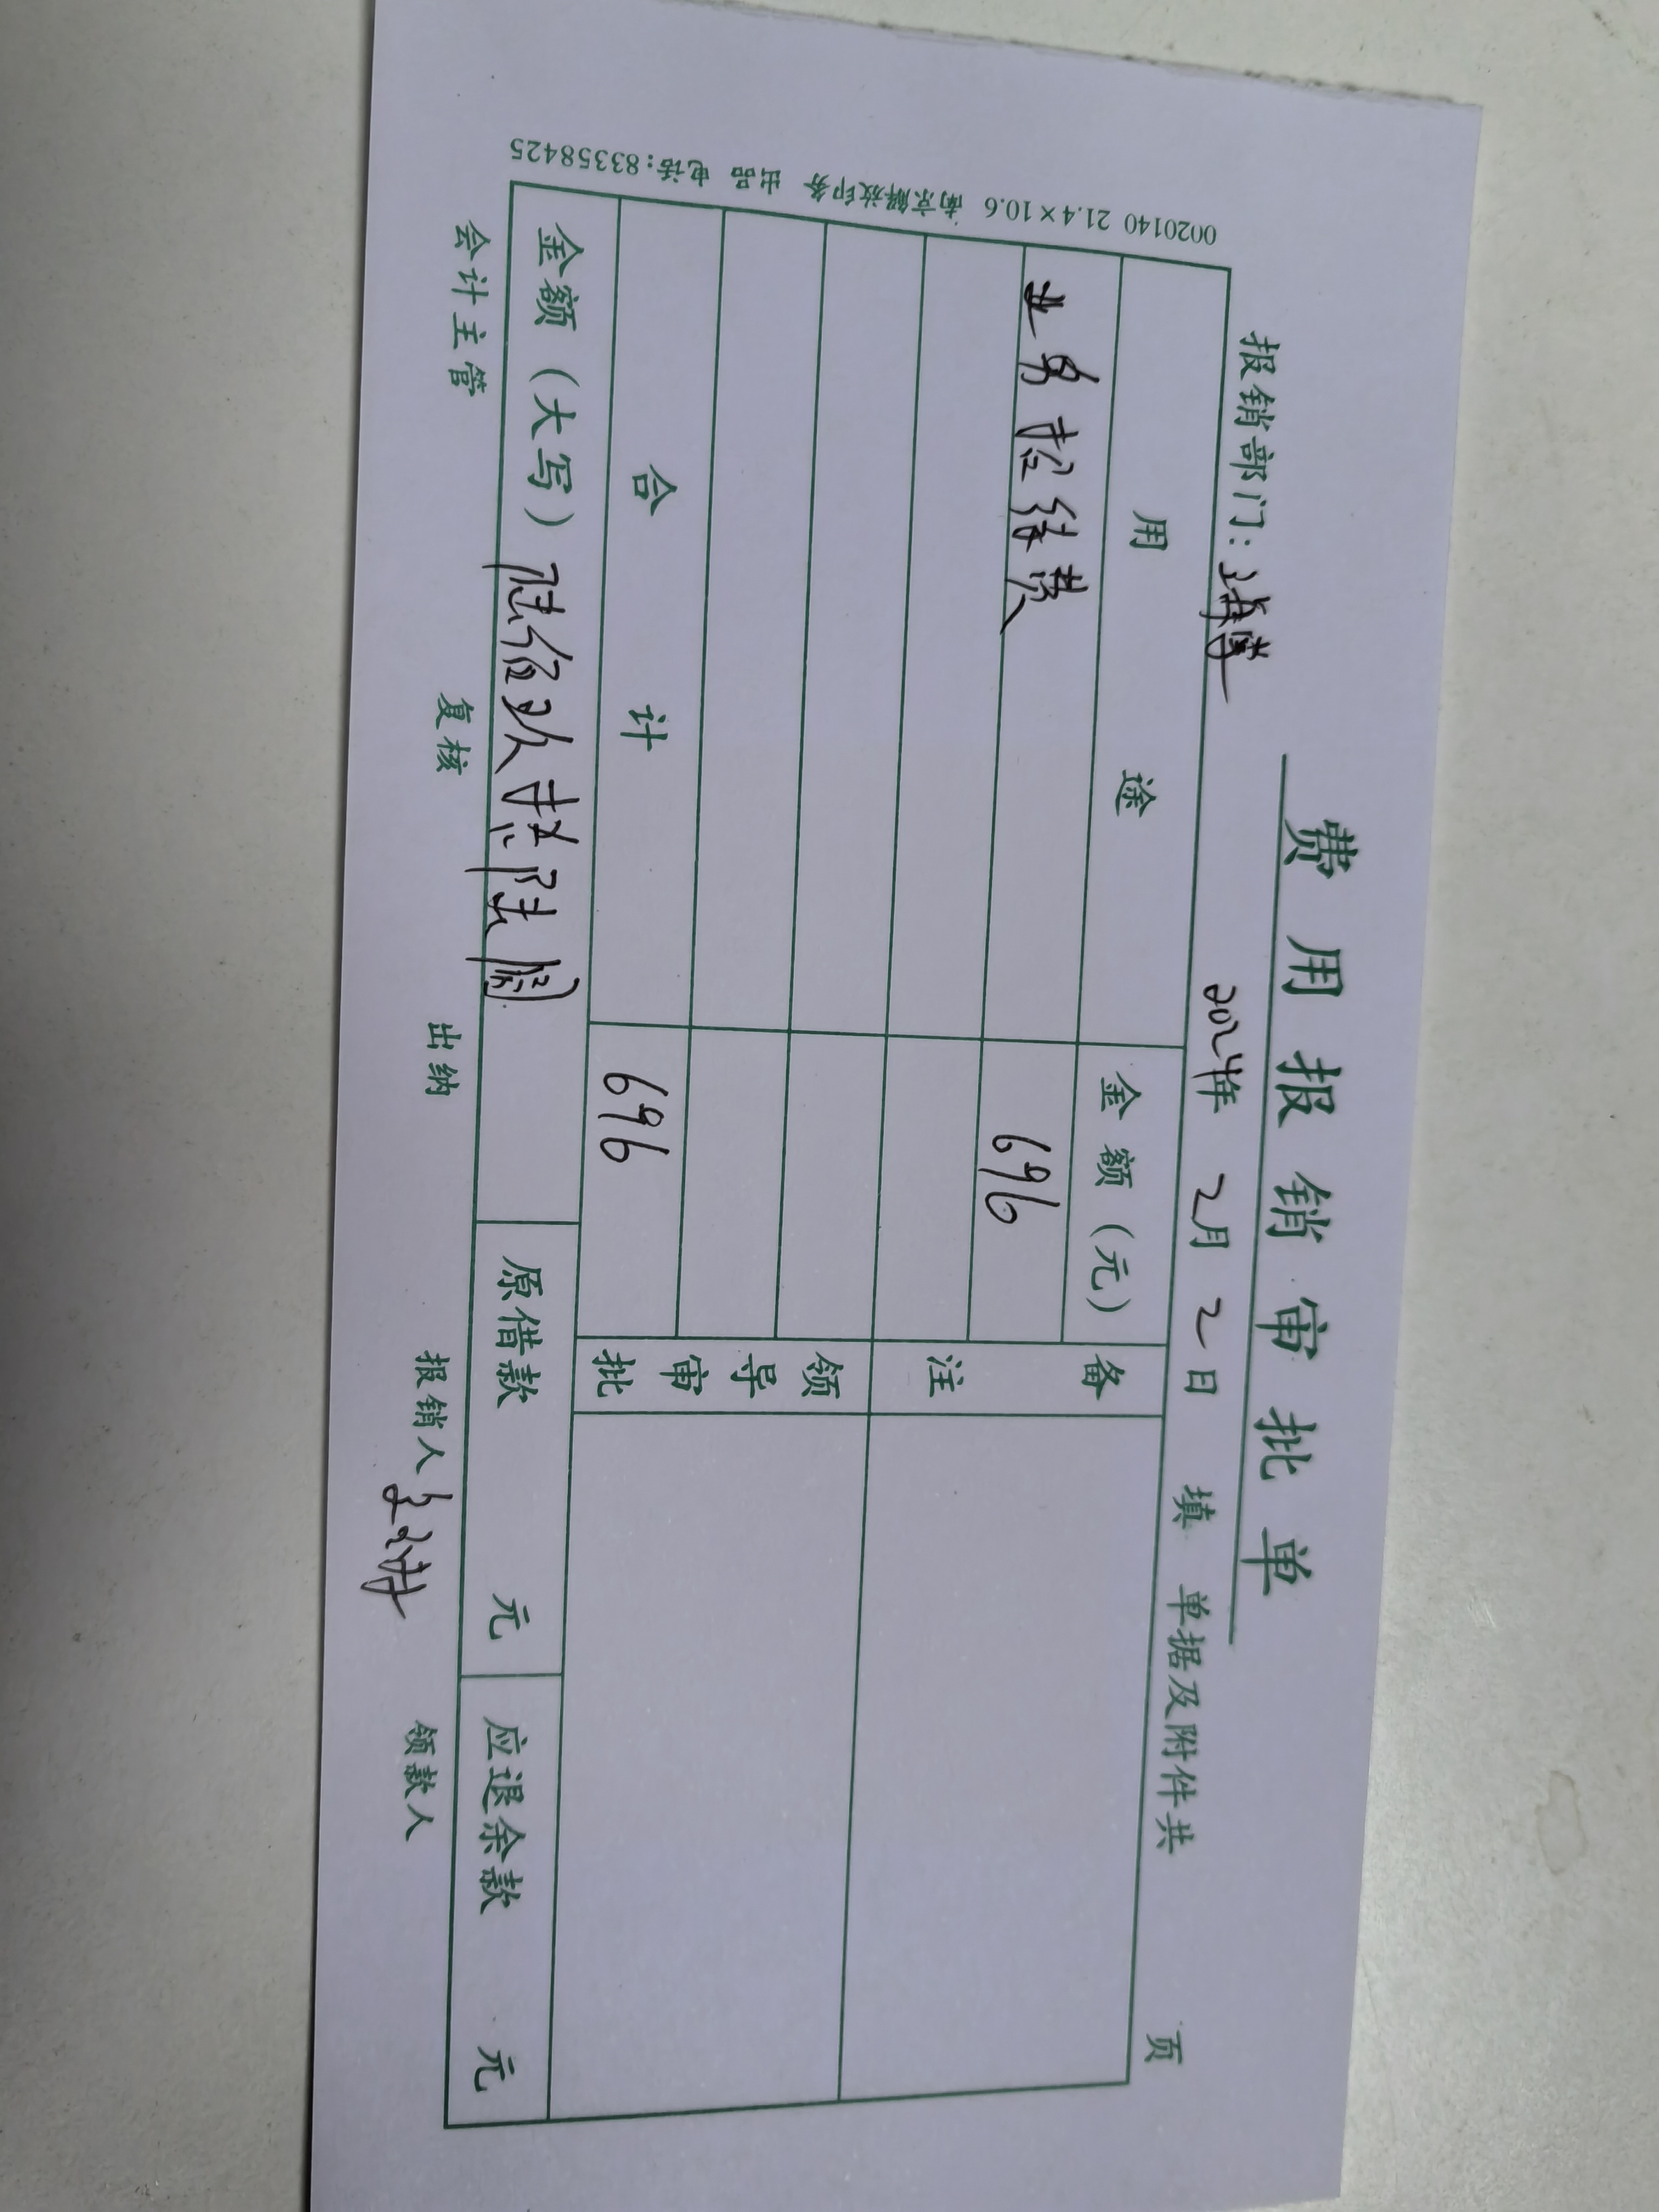 费用报销审批单
报销部门：
2024年 2月 2日 填 单据及附件共 页
用途 金额（元） 备注
业务招待费 696
领导审批
合计 696
金额（大写）陆佰玖拾陆圆 原借款 元 应退余款 元
会计主管 复核 出纳 报销人 领款人
0020140 21.4×10.6 南京解放印务 出品 电话:83358425